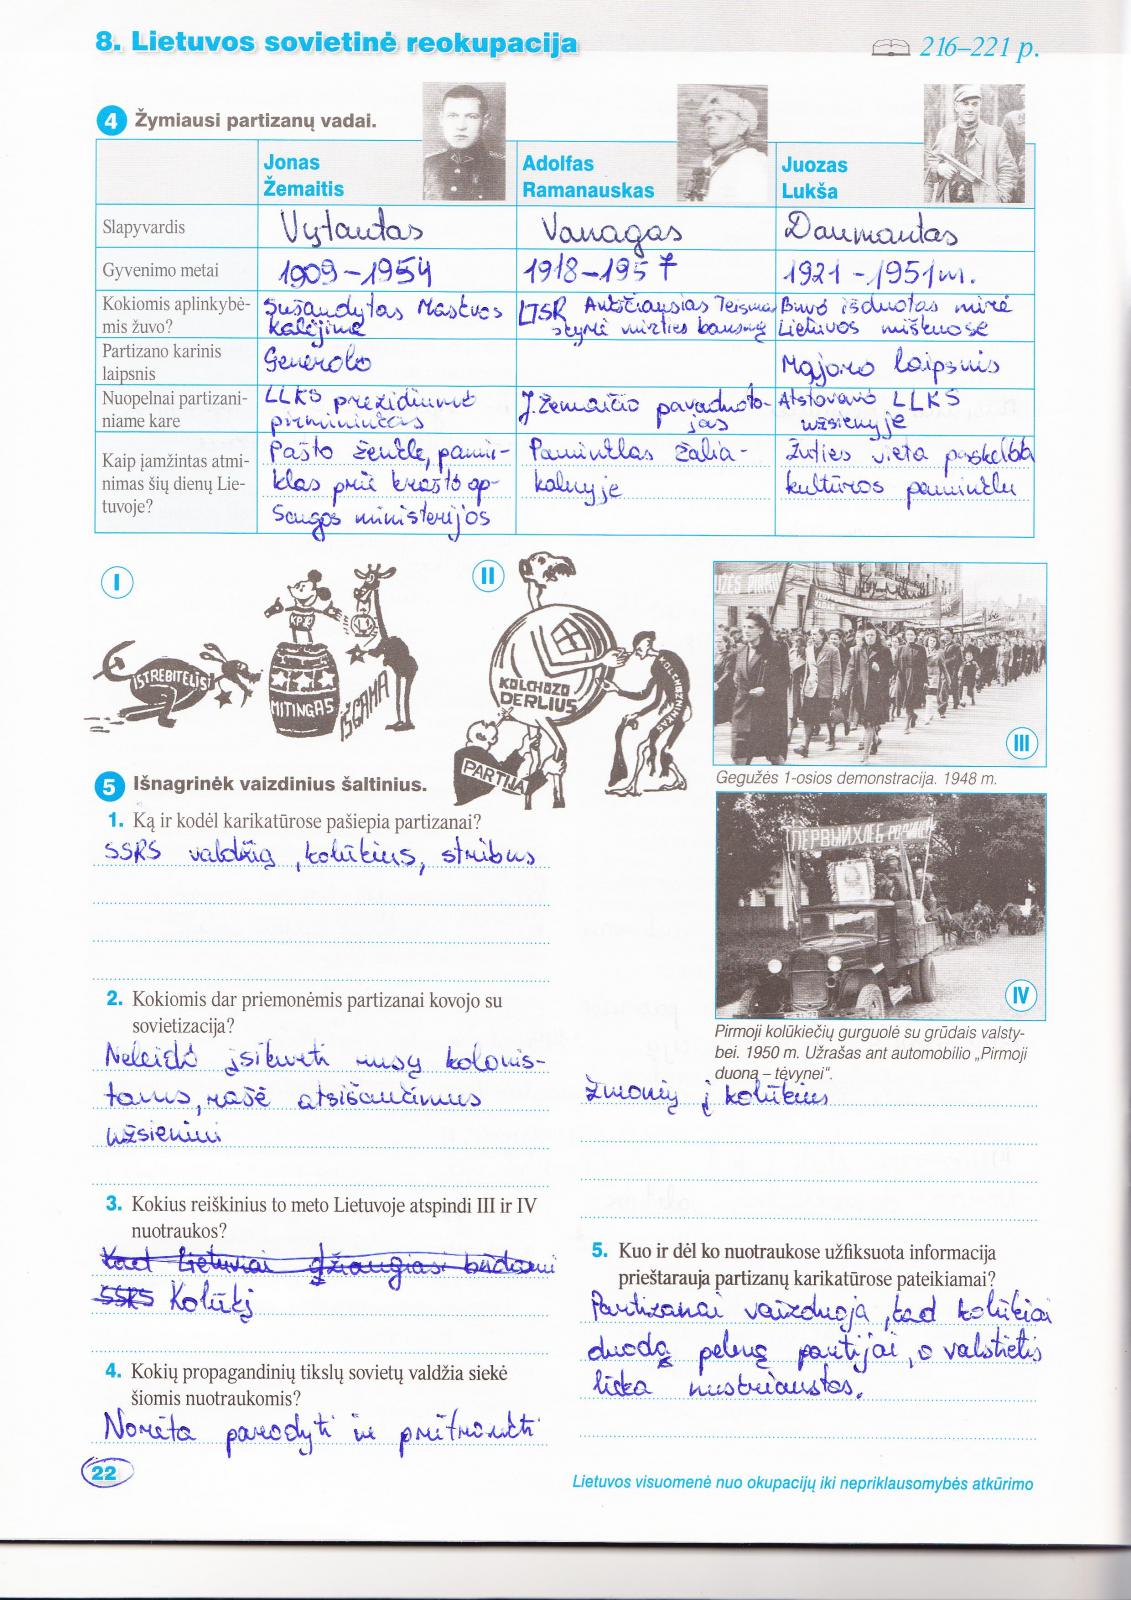 8. Lietuvos sovietinė reokupacija
216–221 p.
4 Žymiausi partizanų vadai.
Jonas Žemaitis
Adolfas Ramanauskas
Juozas Lukša
Slapyvardis
Vytautas
Vanagas
Daumantas
Gyvenimo metai
1909-1954
1918-1957
1921-1951m.
Kokiomis aplinkybė-
mis žuvo?
Sušaudytas Maskvos
kalėjime
LTSR Aukščiausias Teismas
skyrė mirties bausmę
Buvo išduotas mirė
Lietuvos miškuose
Partizano karinis
laipsnis
Generolo
Majoro laipsnis
Nuopelnai partizani-
niame kare
LLKS prezidiumo
pirmininkas
J.Žemaičio pavaduoto-
jas
Atstovavo LLKS
užsienyje
Kaip įamžintas atmi-
nimas šių dienų Lie-
tuvoje?
Pašto ženkle, pamin-
klas prie krašto ap-
saugos ministerijos
Paminklas Žalia-
kalnyje
Žuties vieta paskelbta
kultūros paminklu
I
ISTREBITELIS
KP
MITINGAS
IŠGAMA
II
KOLCHOZO
DERLIUS
KOLCHOZNINKAS
PARTIJA
III
Gegužės 1-osios demonstracija. 1948 m.
5 Išnagrinėk vaizdinius šaltinius.
1. Ką ir kodėl karikatūrose pašiepia partizanai?
SSRS valdžią, kolūkius, stribus
ПЕРВЫЙ ХЛЕБ РОДИНЕ
IV
Pirmoji kolūkiečių gurguolė su grūdais valsty-
bei. 1950 m. Užrašas ant automobilio „Pirmoji
duona – tėvynei“.
2. Kokiomis dar priemonėmis partizanai kovojo su
sovietizacija?
Neleido įsikurti rusų kolonis-
tams, rašė atsišaukimus
užsieniui
3. Kokius reiškinius to meto Lietuvoje atspindi III ir IV
nuotraukos?
Kad Lietuviai džiaugiasi būdami
SSRS Kolūkį
4. Kokių propagandinių tikslų sovietų valdžia siekė
šiomis nuotraukomis?
Norėta parodyti ir pritraukti
žmonių į kolūkius
5. Kuo ir dėl ko nuotraukose užfiksuota informacija
prieštarauja partizanų karikatūrose pateikiamai?
Partizanai vaizduoja, kad kolūkiai
duoda pelną partijai, o valstietis
lieka nuskriaustas.
22
Lietuvos visuomenė nuo okupacijų iki nepriklausomybės atkūrimo